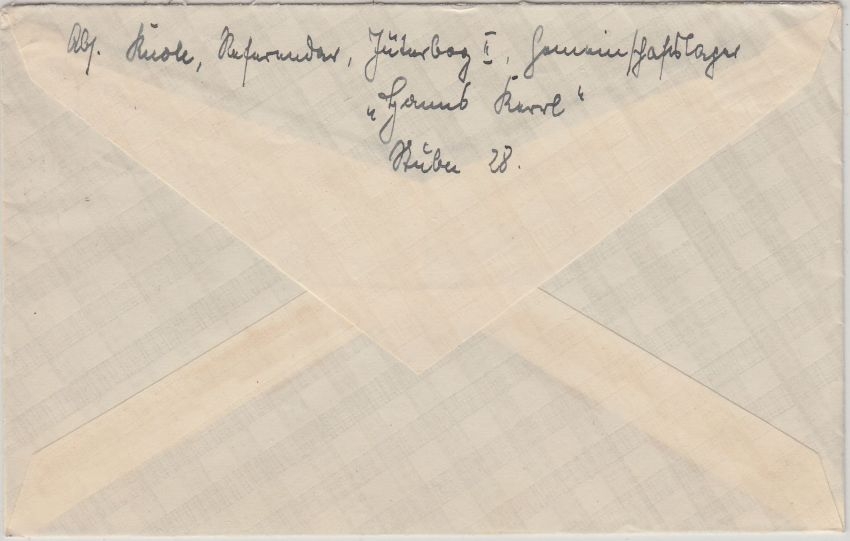 Abs. Knole, Referendar, Jüterbog II, Gemeinschaftslager
„Hanns Kerrl“
Stube 28.